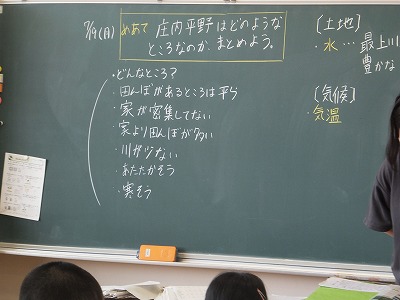 7/9(月) めあて 庄内平野はどのような
ところなのか、まとめよう。
・どんなところ?
・田んぼがあるところは平ら
・家が密集してない
・家より田んぼが多い
・川が少ない
・あたたかそう
・寒そう
〔土地〕
・水…最上川
豊かな
〔気候〕
・気温